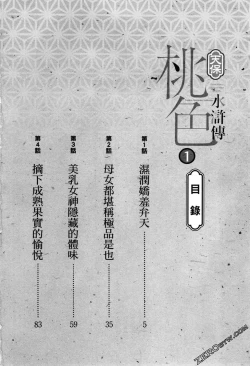 天保
桃色
水滸傳
1
目錄
第1話 濕潤嬌羞弁天 5
第2話 母女都堪稱極品是也 35
第3話 美乳女神隱藏的體味 59
第4話 摘下成熟果實的愉悅 83
XEROBTW.COM